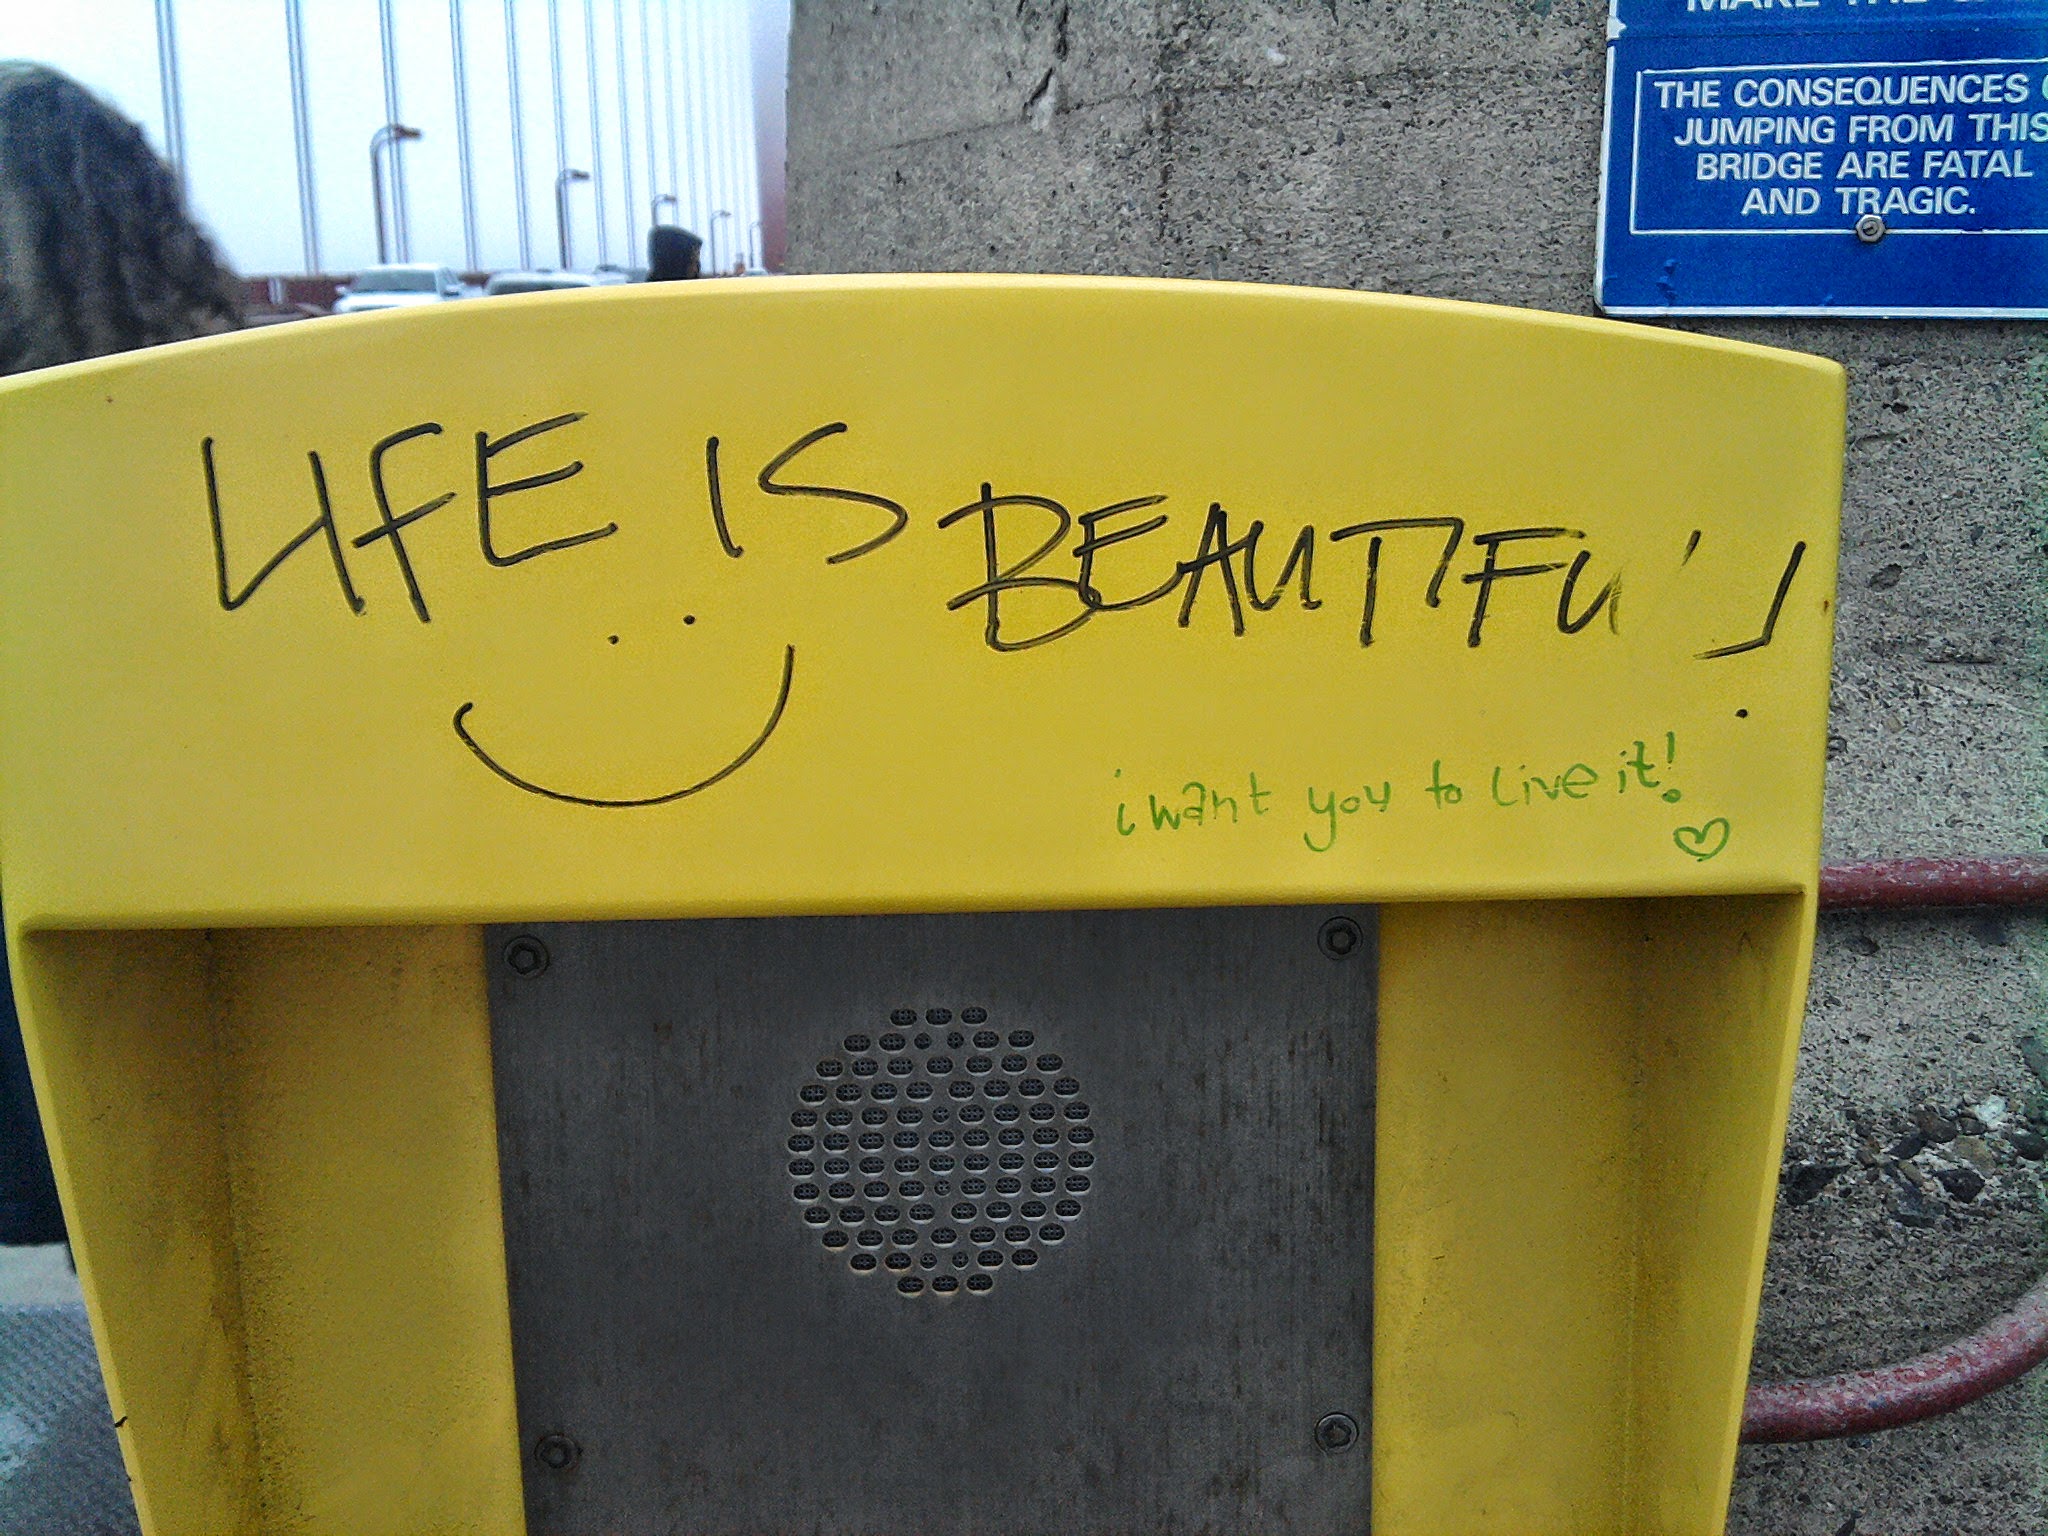 MAKE THE
THE CONSEQUENCES
JUMPING FROM THIS
BRIDGE ARE FATAL
AND TRAGIC.
LIFE IS BEAUTIFUL!
i want you to live it!